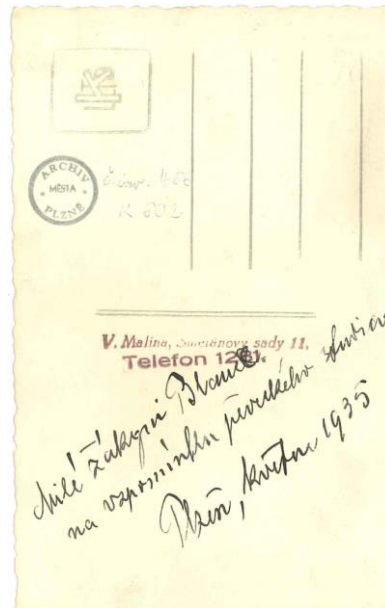 ARCHIV MĚSTA PLZNĚ
K 602
V. Malina, Smetanovy sady 11.
Telefon 1281.
Milé žákyni Blance
na vzpomínku pěveckého studia
Plzeň, květen 1935